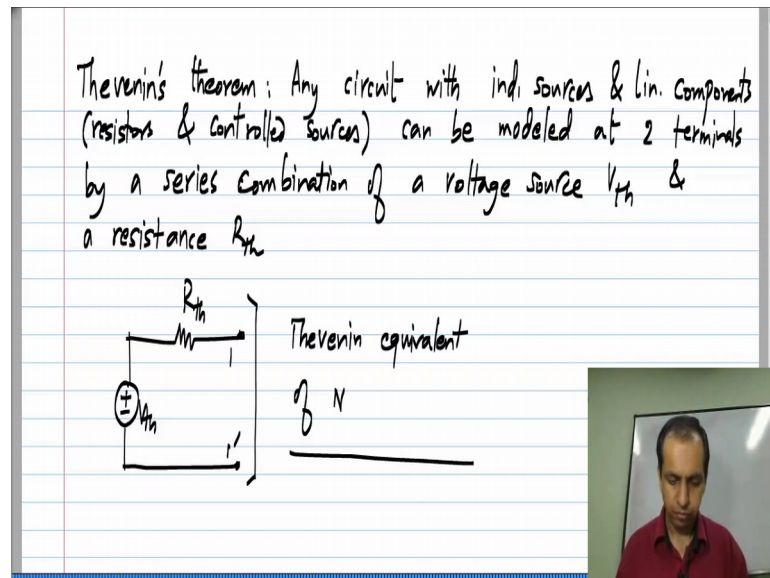 Thevenin's theorem: Any circuit with ind. sources & lin. components
(resistors & controlled sources) can be modeled at 2 terminals
by a series combination of a voltage source Vth &
a resistance Rth
Rth
Thevenin equivalent
1
of N
Vth
1'